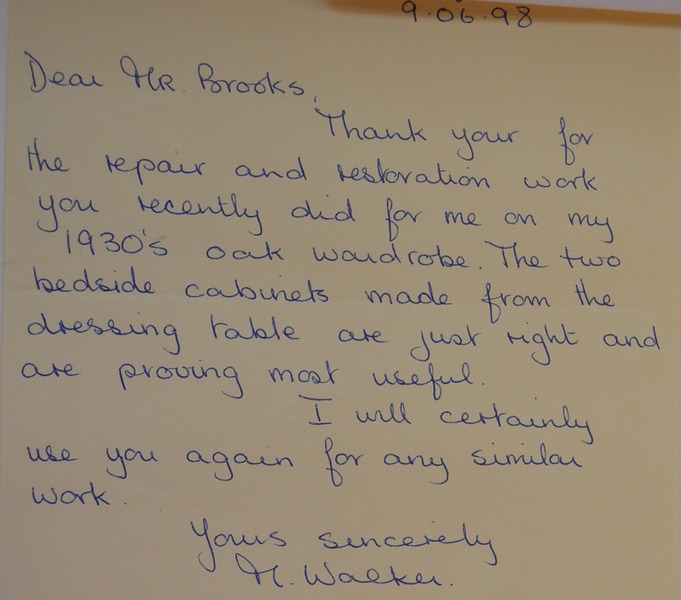 9.06.98
Dear Mr. Brooks,
Thank your for
the repair and restoration work
you recently did for me on my
1930's oak wardrobe. The two
bedside cabinets made from the
dressing table are just right and
are proving most useful.
I will certainly
use you again for any similar
work.
Yours sincerely
M. Walker.